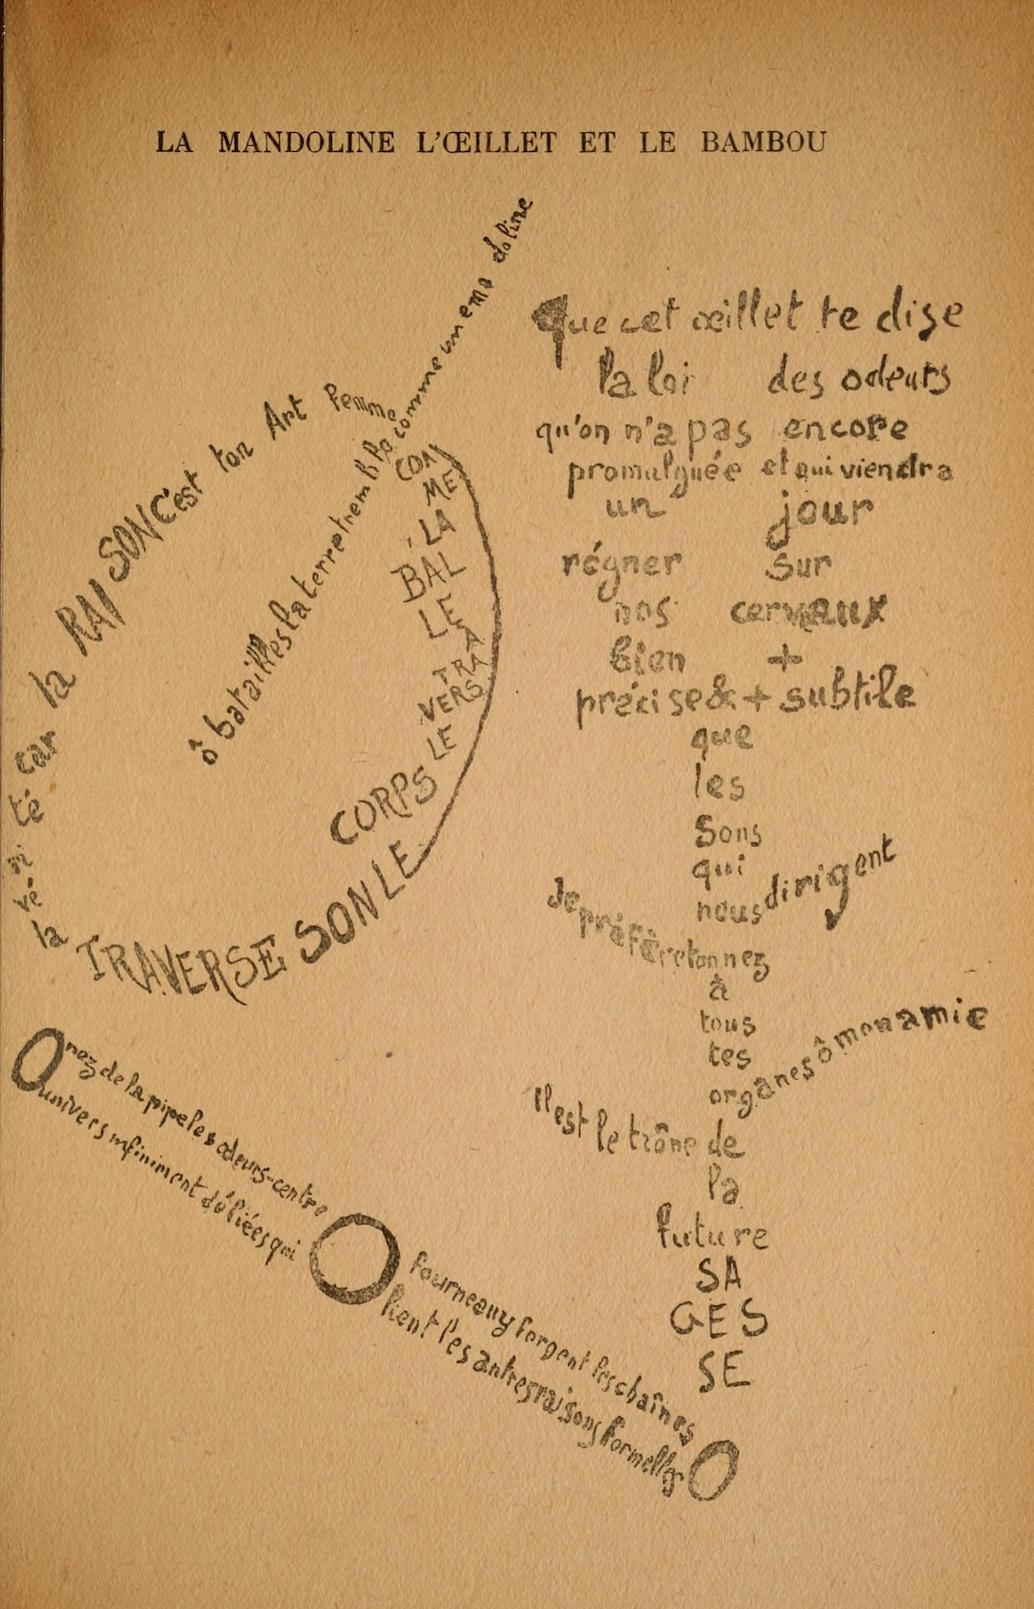 LA MANDOLINE L'ŒILLET ET LE BAMBOU
ô batailles la terre tremble comme une mandoline
COM
ME
LA
BAL
LE
TRA
VERS
LE
CORPS
LE
SON
TRAVERSE
la
vé
ri
té
car
la
RAISON
C'est ton Art Femme
Que cet œillet te dise
la loi des odeurs
qu'on n'a pas encore
promulguée et qui viendra
un jour
régner sur
nos cerveaux
bien +
précise & + subtile
que
les
sons
qui
nous dirigent
Je préfère ton nez
à
tous
tes
organes ô mon amie
Il est le trône de
la
future
SA
GES
SE
O nez de la pipe les odeurs-centre
O fourneau y forgent les chaînes
univers infiniment déliées qui
lient les autres raisons formelles
O